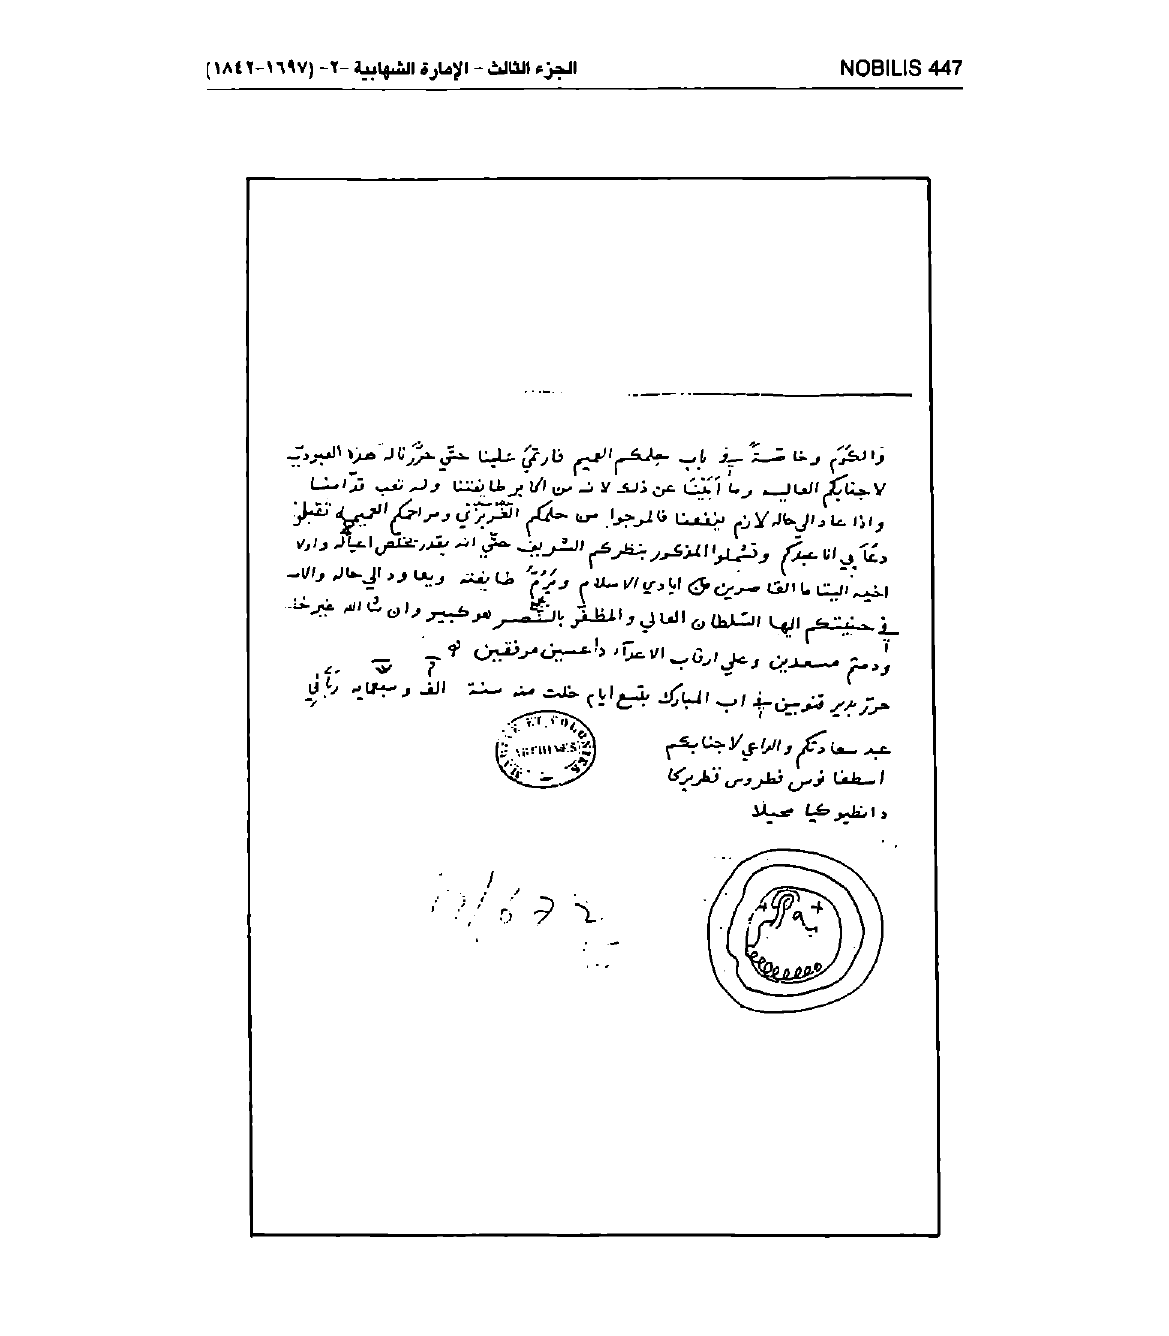 NOBILIS 447
الجزء الثالث - الإمارة الشهابية -٢- (١٦٩٧-١٨٤٢)
والكرم وخاصةً في باب حلمكم العميم فارتمى علينا حتّي حرّرنا له هذه العبوديـ
لاجنابكم العاليه وما أبينا عن ذلك لانه من اكابر طايفتنا وله تعب قدّامنا
واذا عاد الي حاله لازم ينفعنا فالمرجوا من حلمكم الغريزي ومراحمكم العميمه تقبلوا
دعاَ بي انا عبدكم وتشملوا المذكور بنظركم الشريف حتّي انه يقدر يخلّص اعياله واولا
اخيه اليتاما القاصرين من ايادي الاسلام ويروم طايفته ويعاود الي حاله والا
في حنيتكم ايها السّلطان العالي والمظفّر بالنصر هو كبير وان شا الله غير
ودمتم مسعدين وعلي ارقاب الاعدآء داعسين مرفقين
حرر بدير قنوبين في اب المبارك بتسع ايام خلت منه سنة الف وسبعمايه ربّاني
عبد سعادتكم والداعي لاجنابكم
اسطفانوس فطروس فطريركا
دانطيوكيا محيلا
MARINE ET COLONIES
ARCHIVES